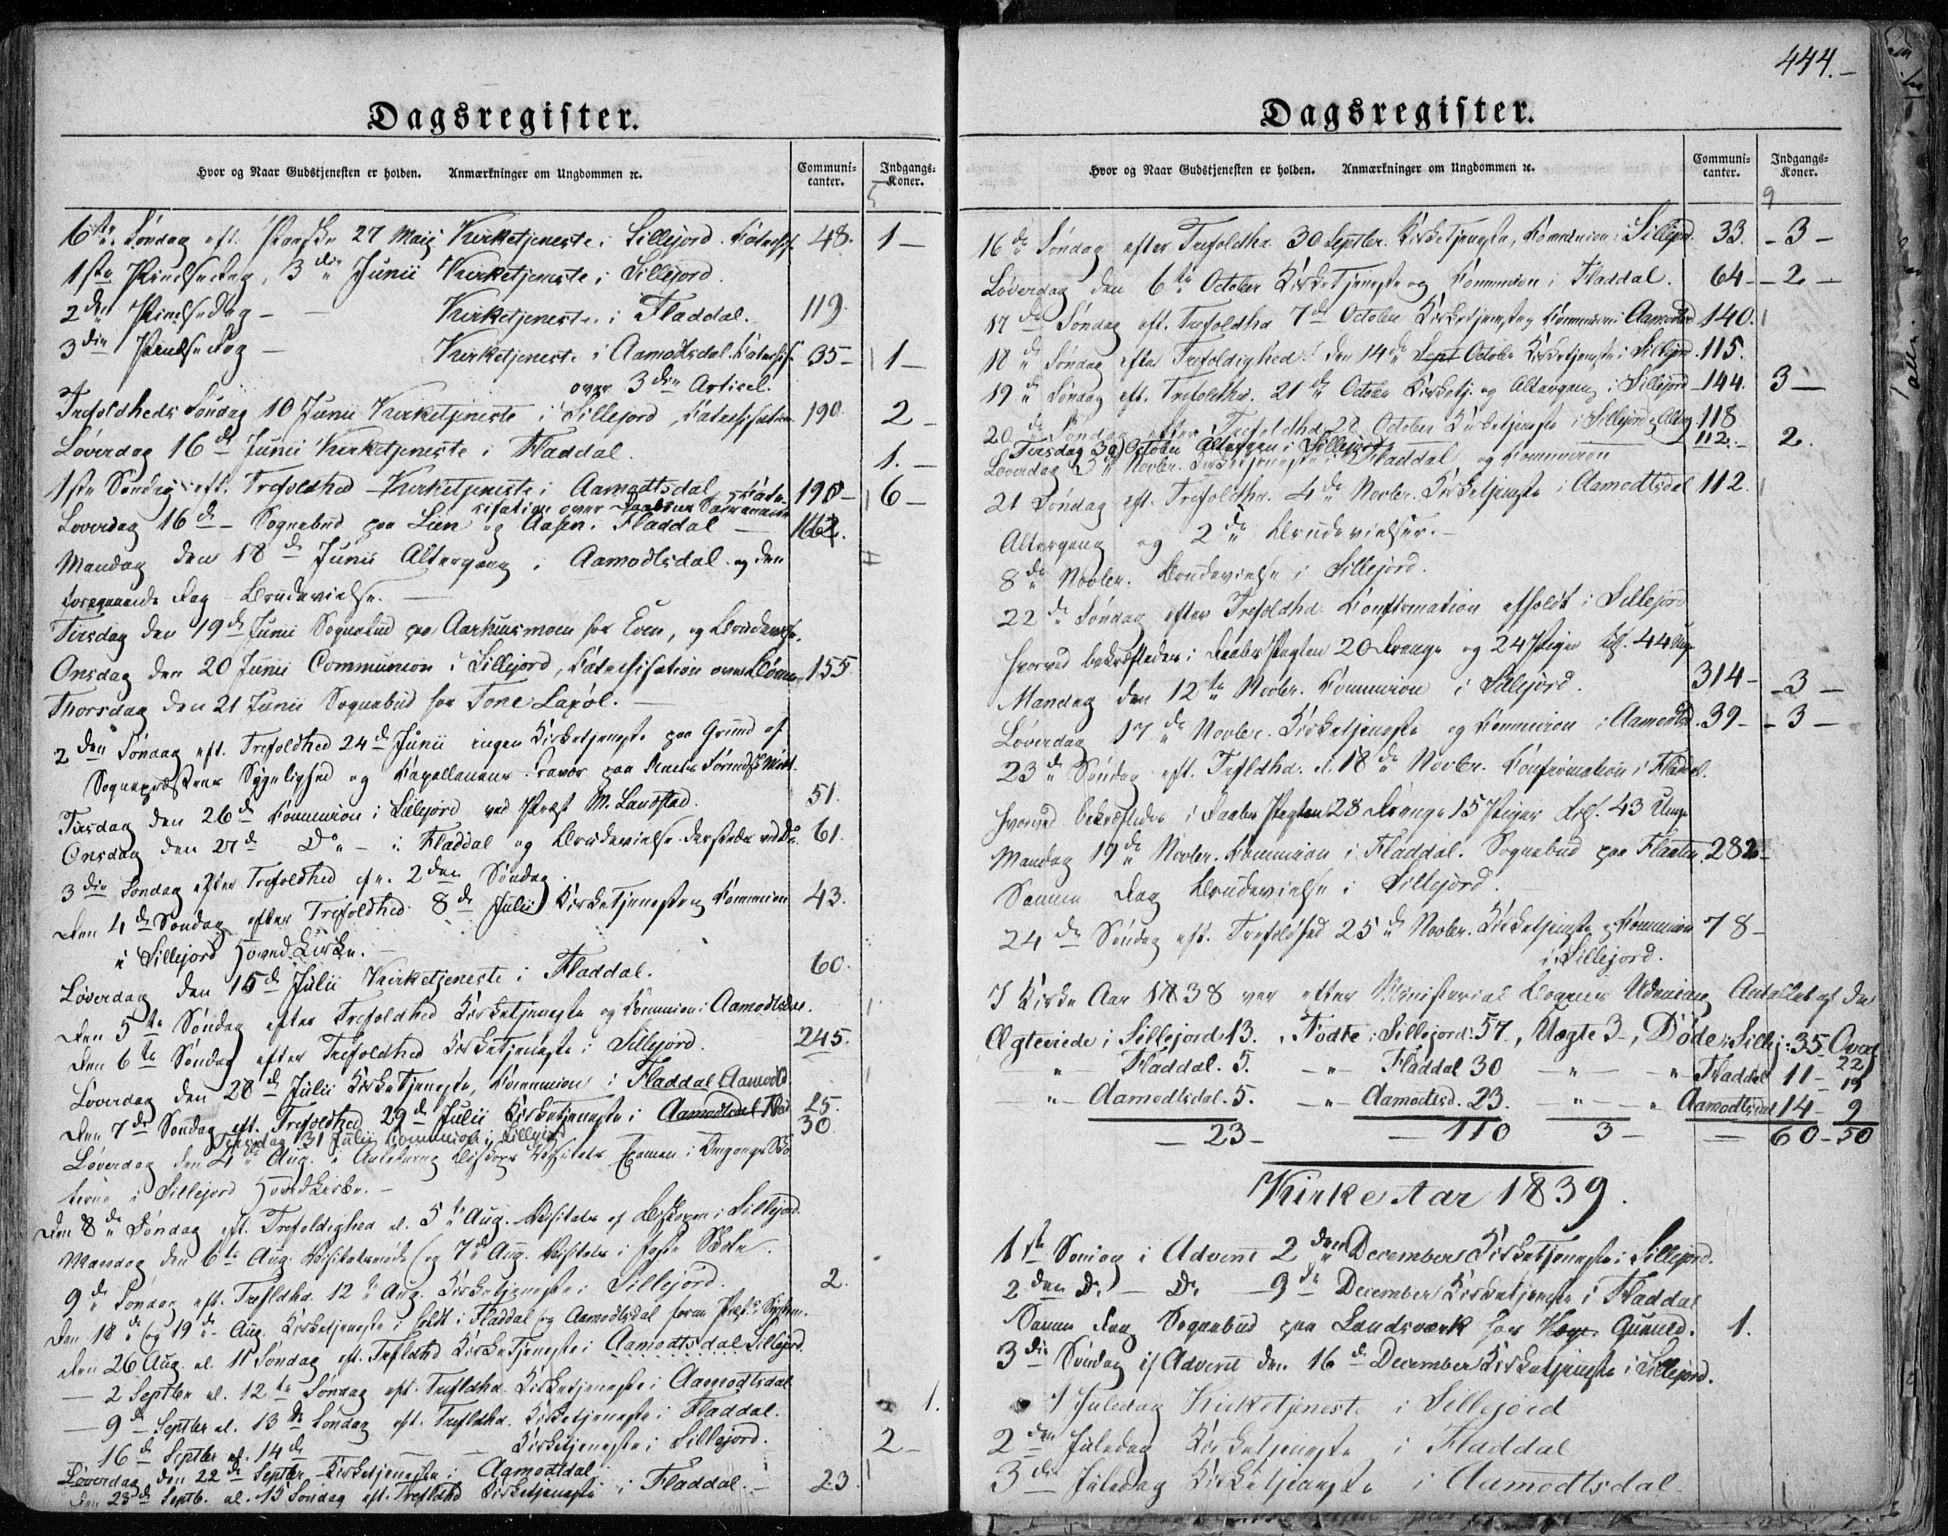 Dagsregister.
Hvor og Naar Gudstjenesten er holden. Anmærkninger om Ungdommen ꝛc. Communicanter. Indgangs-Koner.
6te Søndag eft. Paaske 27 Maij Kirketjeneste i Sillejord. 48. 1 —
1ste Pindsedag, 3die Junii Kirketjeneste i Sillejord.
2den Pindsedag — Kirketjeneste i Fladdal. 119.
3die Pindsedag — Kirketjeneste i Aamodtsdal. 35 — 1 —
over 3die Articel.
Trefoldheds Søndag 10 Junii Kirketjeneste i Sillejord, 190. 2 —
Løverdag 16de Junii Kirketjeneste i Fladdal. 1. —
1ste Søndag eft. Trefoldhed Kirketjeneste i Aamodtsdal 198 — 6 —
Løverdag 16de — Sognebud paa Lien og Aasen i Fladdal — 162.
Mandag den 18de Junii Altergang i Aamodtsdal og den
foregaaende Dag Brudevielse. —
Tirsdag den 19de Junii Sognebud paa Aarhusmoen hos Even, og Brudevielse.
Onsdag den 20 Junii Communion i Sillejord, 155
Thorsdag den 21 Junii Sognebud hos Tone Laxøl. —
2den Søndag eft. Trefoldhed 24de Junii ingen Kirketjeneste paa Grund af
Sognepræstens Sygelighed og Kapellanens Fravær paa
Tirsdag den 26de Kommunion i Sillejord ved Præst M. Landstad. 51.
Onsdag den 27de Do — i Fladdal og Brudevielse 61.
3die Søndag efter Trefoldhed 2den Søndag.
Den 4de Søndag efter Trefoldhed 8de Julii Kirketjeneste og Kommunion 43.
i Sillejord Hovedkirke. —
Løverdag den 15de Julii Kirketjeneste i Fladdal. 60.
Den 5te Søndag efter Trefoldhed Kirketjeneste og Kommunion i Aamodtsdal.
Den 6te Søndag efter Trefoldhed Kirketjeneste i Sillejord. 245.
Løverdag den 28de Julii Kirketjeneste, Kommunion i Fladdal Aamodtd
Den 7de Søndag eft. Trefoldhed 29de Julii Kirketjeneste i Aamodtsdal 25.
Tirsdag 31 Julii Communion i Sillejord 30.
Løverdag den 4de Aug. Visitats Examen i
i Sillejord Hovedkirke. —
Den 8de Søndag eft. Trefoldighed d. 5te Aug. Visitats af Biskopen i Sillejord.
Mandag den 6te Aug. og 7de Aug. Visitats i
9de Søndag eft. Trefldhd. 12te Aug. Kirketjeneste i Sillejord. 2.
Den 18de og 19de Aug. Kirketjeneste i Fladdal og Aamodtsdal
Den 26 Aug. d. 11 Søndag eft. Trefldhd Kirketjeneste i Aamodtsdal Sillejord.
— 2 Septbr d. 12te Søndag eft. Trefldhd. Kirketjeneste i Aamodtsdal
— 9de Septbr d. 13de Søndag eft. Trefldhd. Kirketjeneste i Fladdal. 1.
— 16de Septbr d. 14de — Kirketjeneste i Sillejord. 2 —
Løverdag den 22de Septbr. Kirketjeneste i Aamodtdal
Den 23de Septb. d. 15 Søndag eft. Trefldhd Kirketjeneste i Fladdal. — 23
444. —
Dagsregister.
Hvor og Naar Gudstjenesten er holden. Anmærkninger om Ungdommen ꝛc. Communicanter. Indgangs-Koner.
16de Søndag efter Trefoldhd. 30 Septbr. Kirketjeneste, Kommunion i Sillejord. 33. — 3 —
Løverdag den 6te October Kirketjeneste og Kommunion i Fladdal. 64 — — 2 —
17de Søndag eft. Trefoldhd 7de October Kirketjeneste, Kommunion i Aamodtsd 140.
18de Søndag efter Trefoldighed den 14de Sept October Kirketjeneste i Sillejord. 115.
19de Søndag eft. Trefoldhd. 21de October Kirketj. og Altergang i Sillejord 144. 3 —
20de Søndag efter Trefoldhd 28 October Kirketjeneste i Sillejord, Alterg 118
Tirsdag 30 October Altergang i Sillejord 112. 2.
Løverdag 3de Novbr. Kirketjeneste i Fladdal og Kommunion
21 Søndag eft. Trefoldhd. 4de Novbr. Kirketjeneste i Aamodtsdal 112.
Altergang og 2de Brudevielser. —
8de Novbr. Brudevielse i Sillejord.
22de Søndag efter Trefoldhd. Konfirmation afholdt i Sillejord
hvorved bekræftedes i Daabs Pagten 20 Drenge og 24 Piger tils. 44 Unge
Mandag den 12te Novbr. Kommunion i Sillejord. 314 — — 3 —
Løverdag 17de Novbr. Kirketjeneste og Kommunion i Aamodtsd. 39 — — 3 —
23de Søndag eft. Trefldhd. d. 18de Novbr. Konfirmation i Fladdal.
hvorved bekræftedes i Daabs Pagten 28 Drenge 15 Piger tils. 43 Unge
Mandag 19de Novbr. Kommunion i Fladdal. Sognebud paa Flaaten 282 —
Samme Dag Brudevielse i Sillejord.
24de Søndag eft. Trefoldhed 25de Novbr. Kirketjeneste og Kommunion 78 —
i Sillejord.
I Kirke Aar 1838 var efter Ministerial Bogens Udvisning Antallet af de
Ægteviede i Sillejord 13. Fødte i Sillejord: 57, Uægte 3 —, Døde i Sillej: 35
" Fladdal. 5. — " — Fladdal 30 — " — " Fladdal 11 —
— " — Aamodtsdal. 5. — " — Aamodtsd. 23. — " — " Aamodtsdal 14 — 9
— 23 — — 110 3 — — 60 — 50
Kirke Aar 1839.
1ste Søndag i Advent 2den December Kirketjeneste i Sillejord.
2den Do — Do — 9de December Kirketjeneste i Fladdal
Samme Dag Sognebud paa Landsværk hos Gunuld. 1.
3die Søndag i Advent den 16de December Kirketjeneste i Sillejord.
1 Juledag Kirketjeneste i Sillejord
2den Juledag Kirketjeneste i Fladdal
3die Juledag Kirketjeneste i Aamodtsdal.